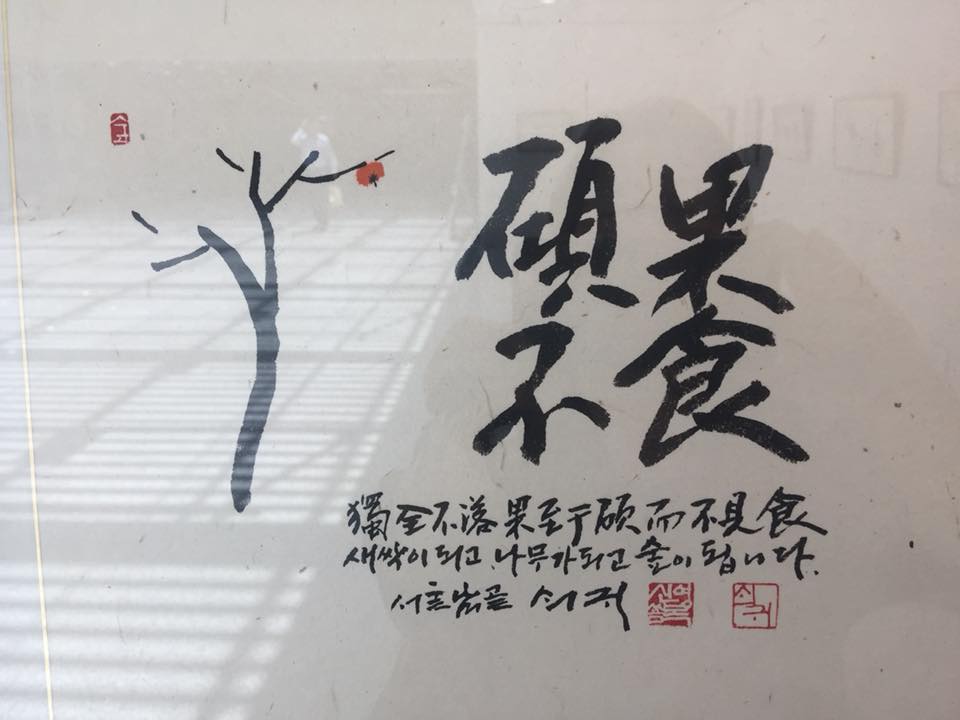 碩果
不食
獨全不落果至于碩而不見食
새싹이 되고 나무가 되고 숲이 됩니다.
쇠귀